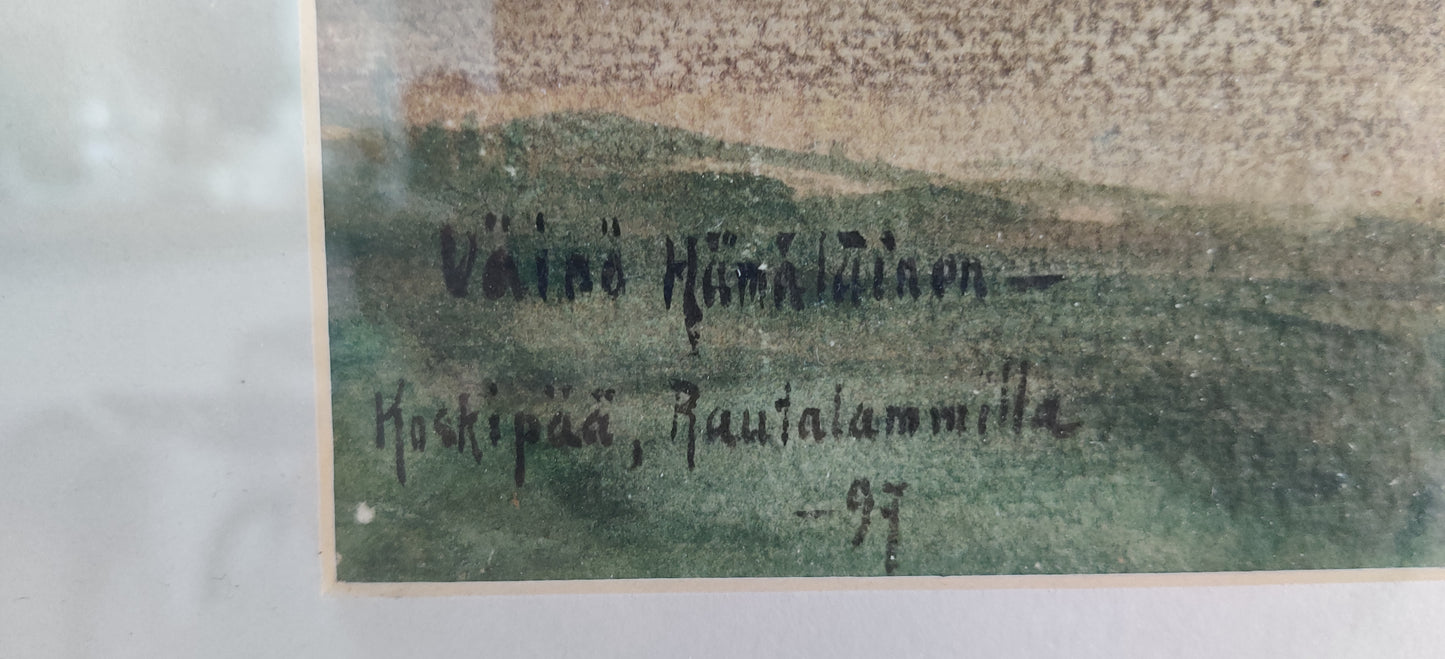 Väinö Hämäläinen —
Koskipää, Rautalammilla
— 97